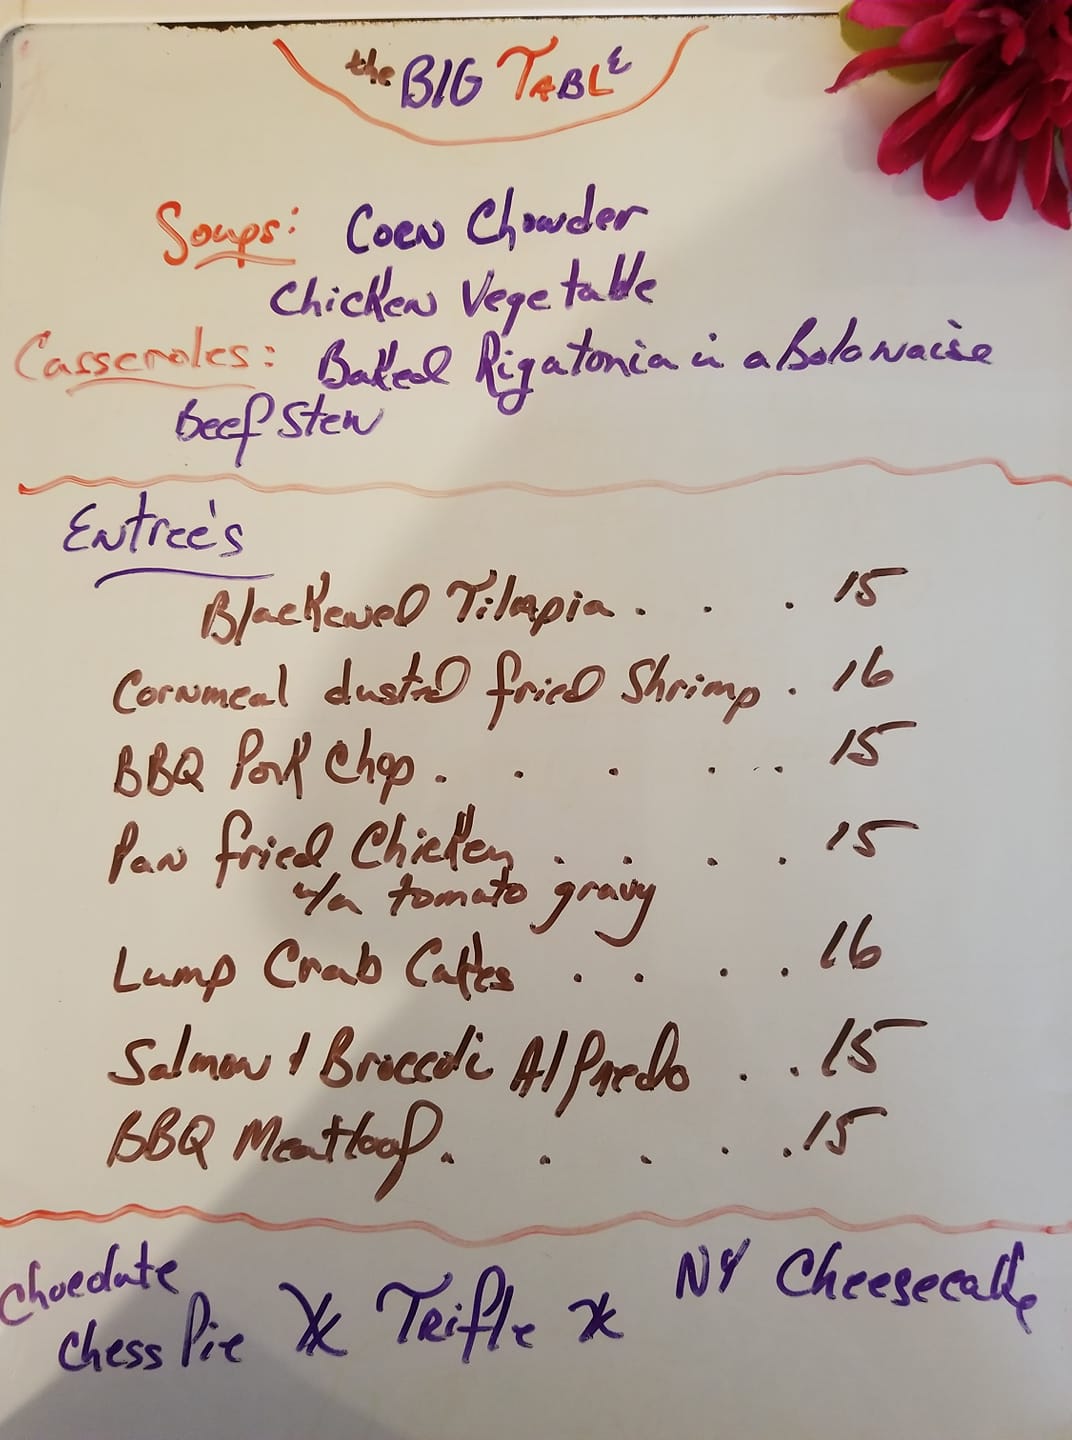 the BIG TABLE
Soups: Corn Chowder
Chicken Vegetable
Casseroles: Baked Rigatonia in a Bolonaise
Beef Stew
Entree's
Blackened Tilapia . . . 15
Cornmeal dusted fried Shrimp . 16
BBQ Pork Chop . . . . . . 15
Pan fried Chicken . . . . 15
w/a tomato gravy
Lump Crab Cakes . . . . 16
Salmon & Broccoli Alfredo . . 15
BBQ Meatloaf . . . . . 15
Chocolate
Chess Pie * Trifle * NY Cheesecake